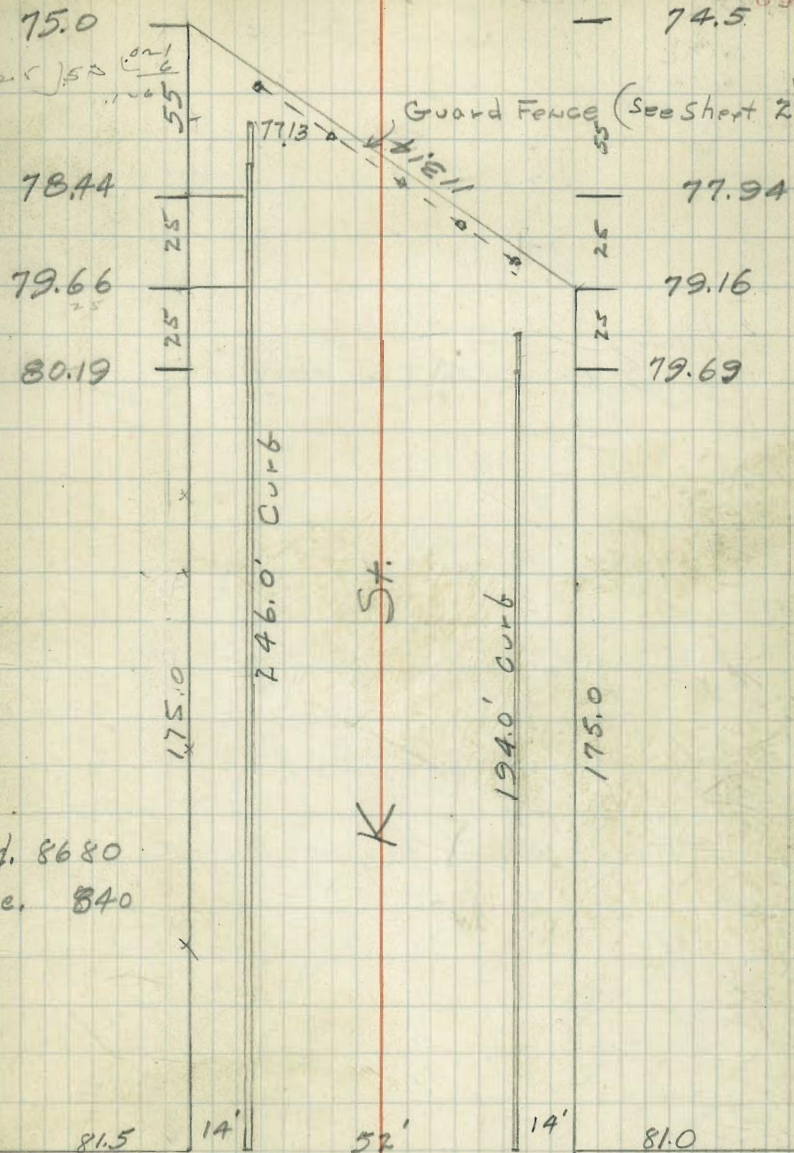 75.0
74.5
55
77.13
Guard Fence (See Sheet 2
55
113.14
78.44
77.94
25
25
79.66
79.16
25
25
80.19
79.69
246.0' Curb
St.
194.0' Curb
175.0
175.0
K
8680
840
81.5
14'
52'
14'
81.0